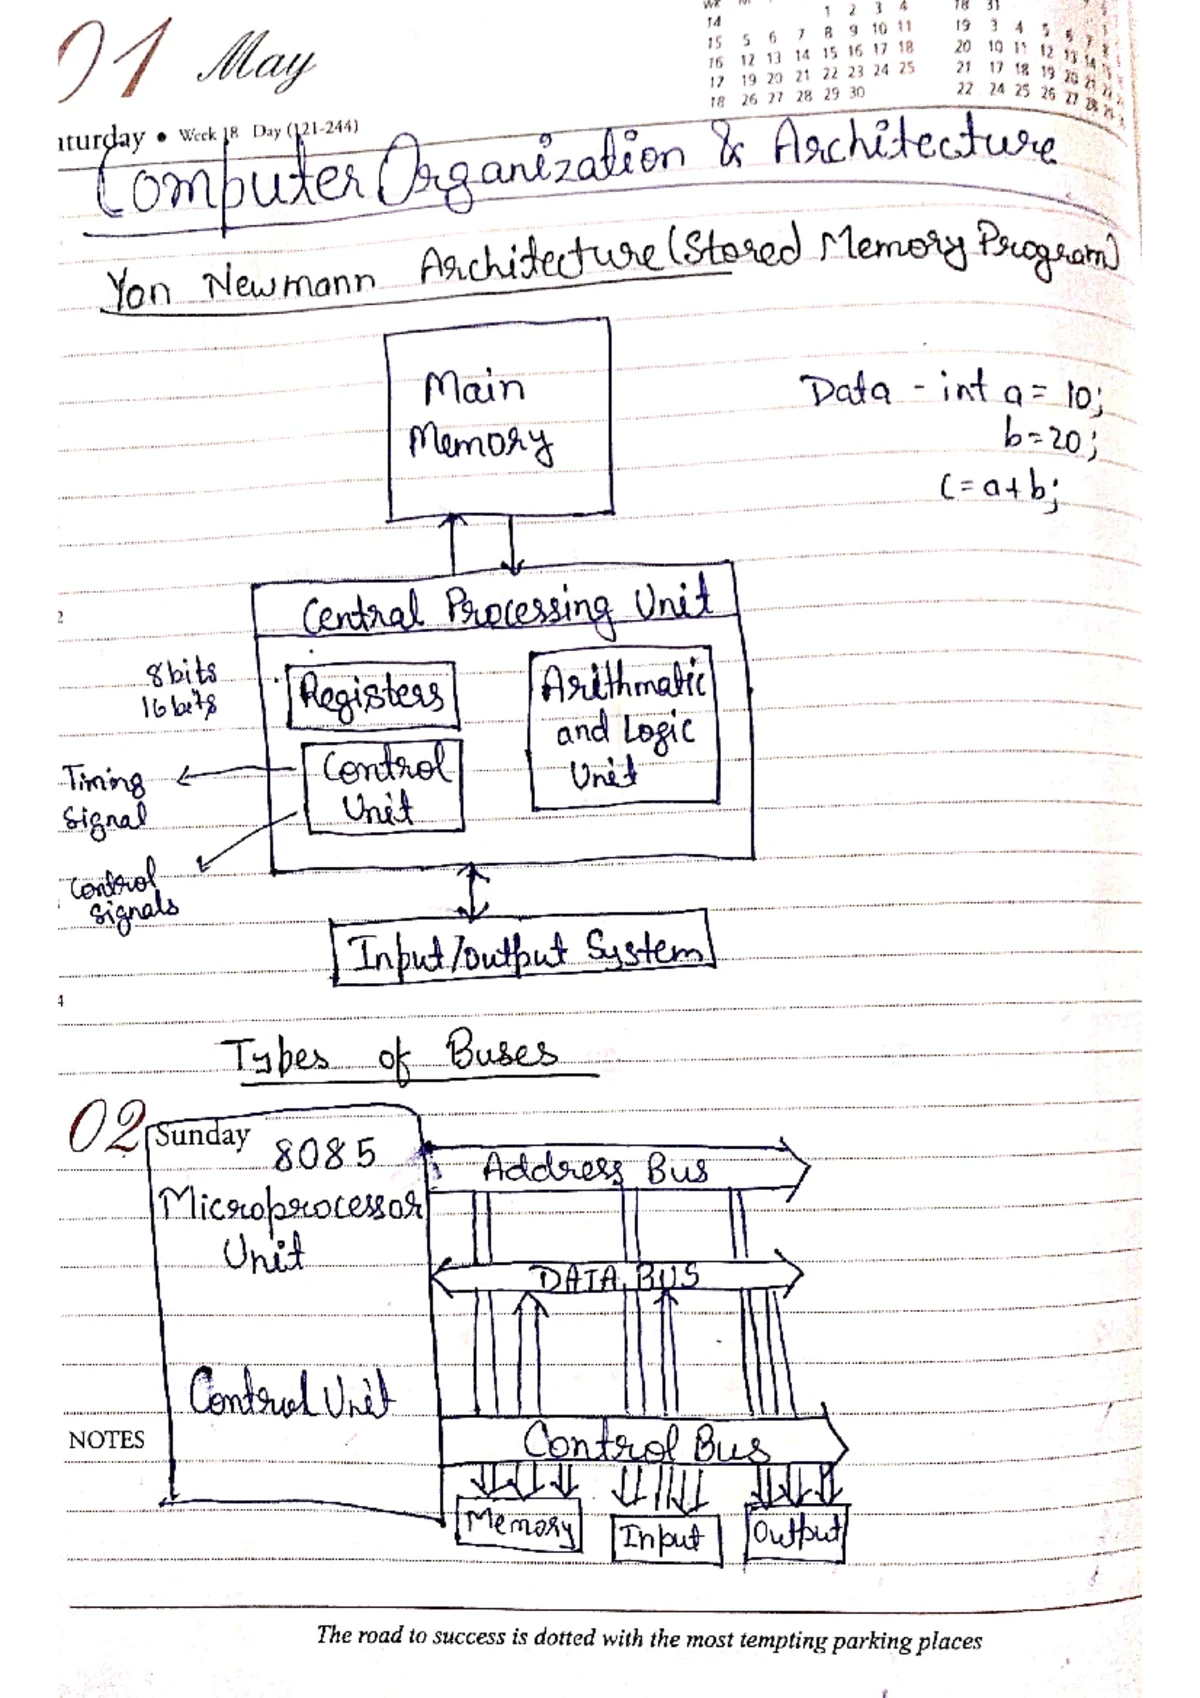 01 May
WK
1 2 3 4
14
15 5 6 7 8 9 10 11
16 12 13 14 15 16 17 18
17 19 20 21 22 23 24 25
18 26 27 28 29 30
18 31
19 3 4 5 6 7
20 10 11 12 13 14
21 17 18 19 20 21
22 24 25 26 27 28
aturday • Week 18 Day (121-244)
Computer Organization & Architecture
Von Newmann Architecture (Stored Memory Program)
Main
Memory
Data - int a = 10;
b = 20;
C = a + b;
2
Central Processing Unit
8 bits
16 bits
Registers
Arithmatic
and Logic
Unit
Control
Unit
Timing
Signal
Control
Signals
Input/Output System
4
Types of Buses
02 Sunday
8085
Microprocessor
Unit
Address Bus
DATA BUS
Control Unit
NOTES
Control Bus
Memory
Input
Output
The road to success is dotted with the most tempting parking places